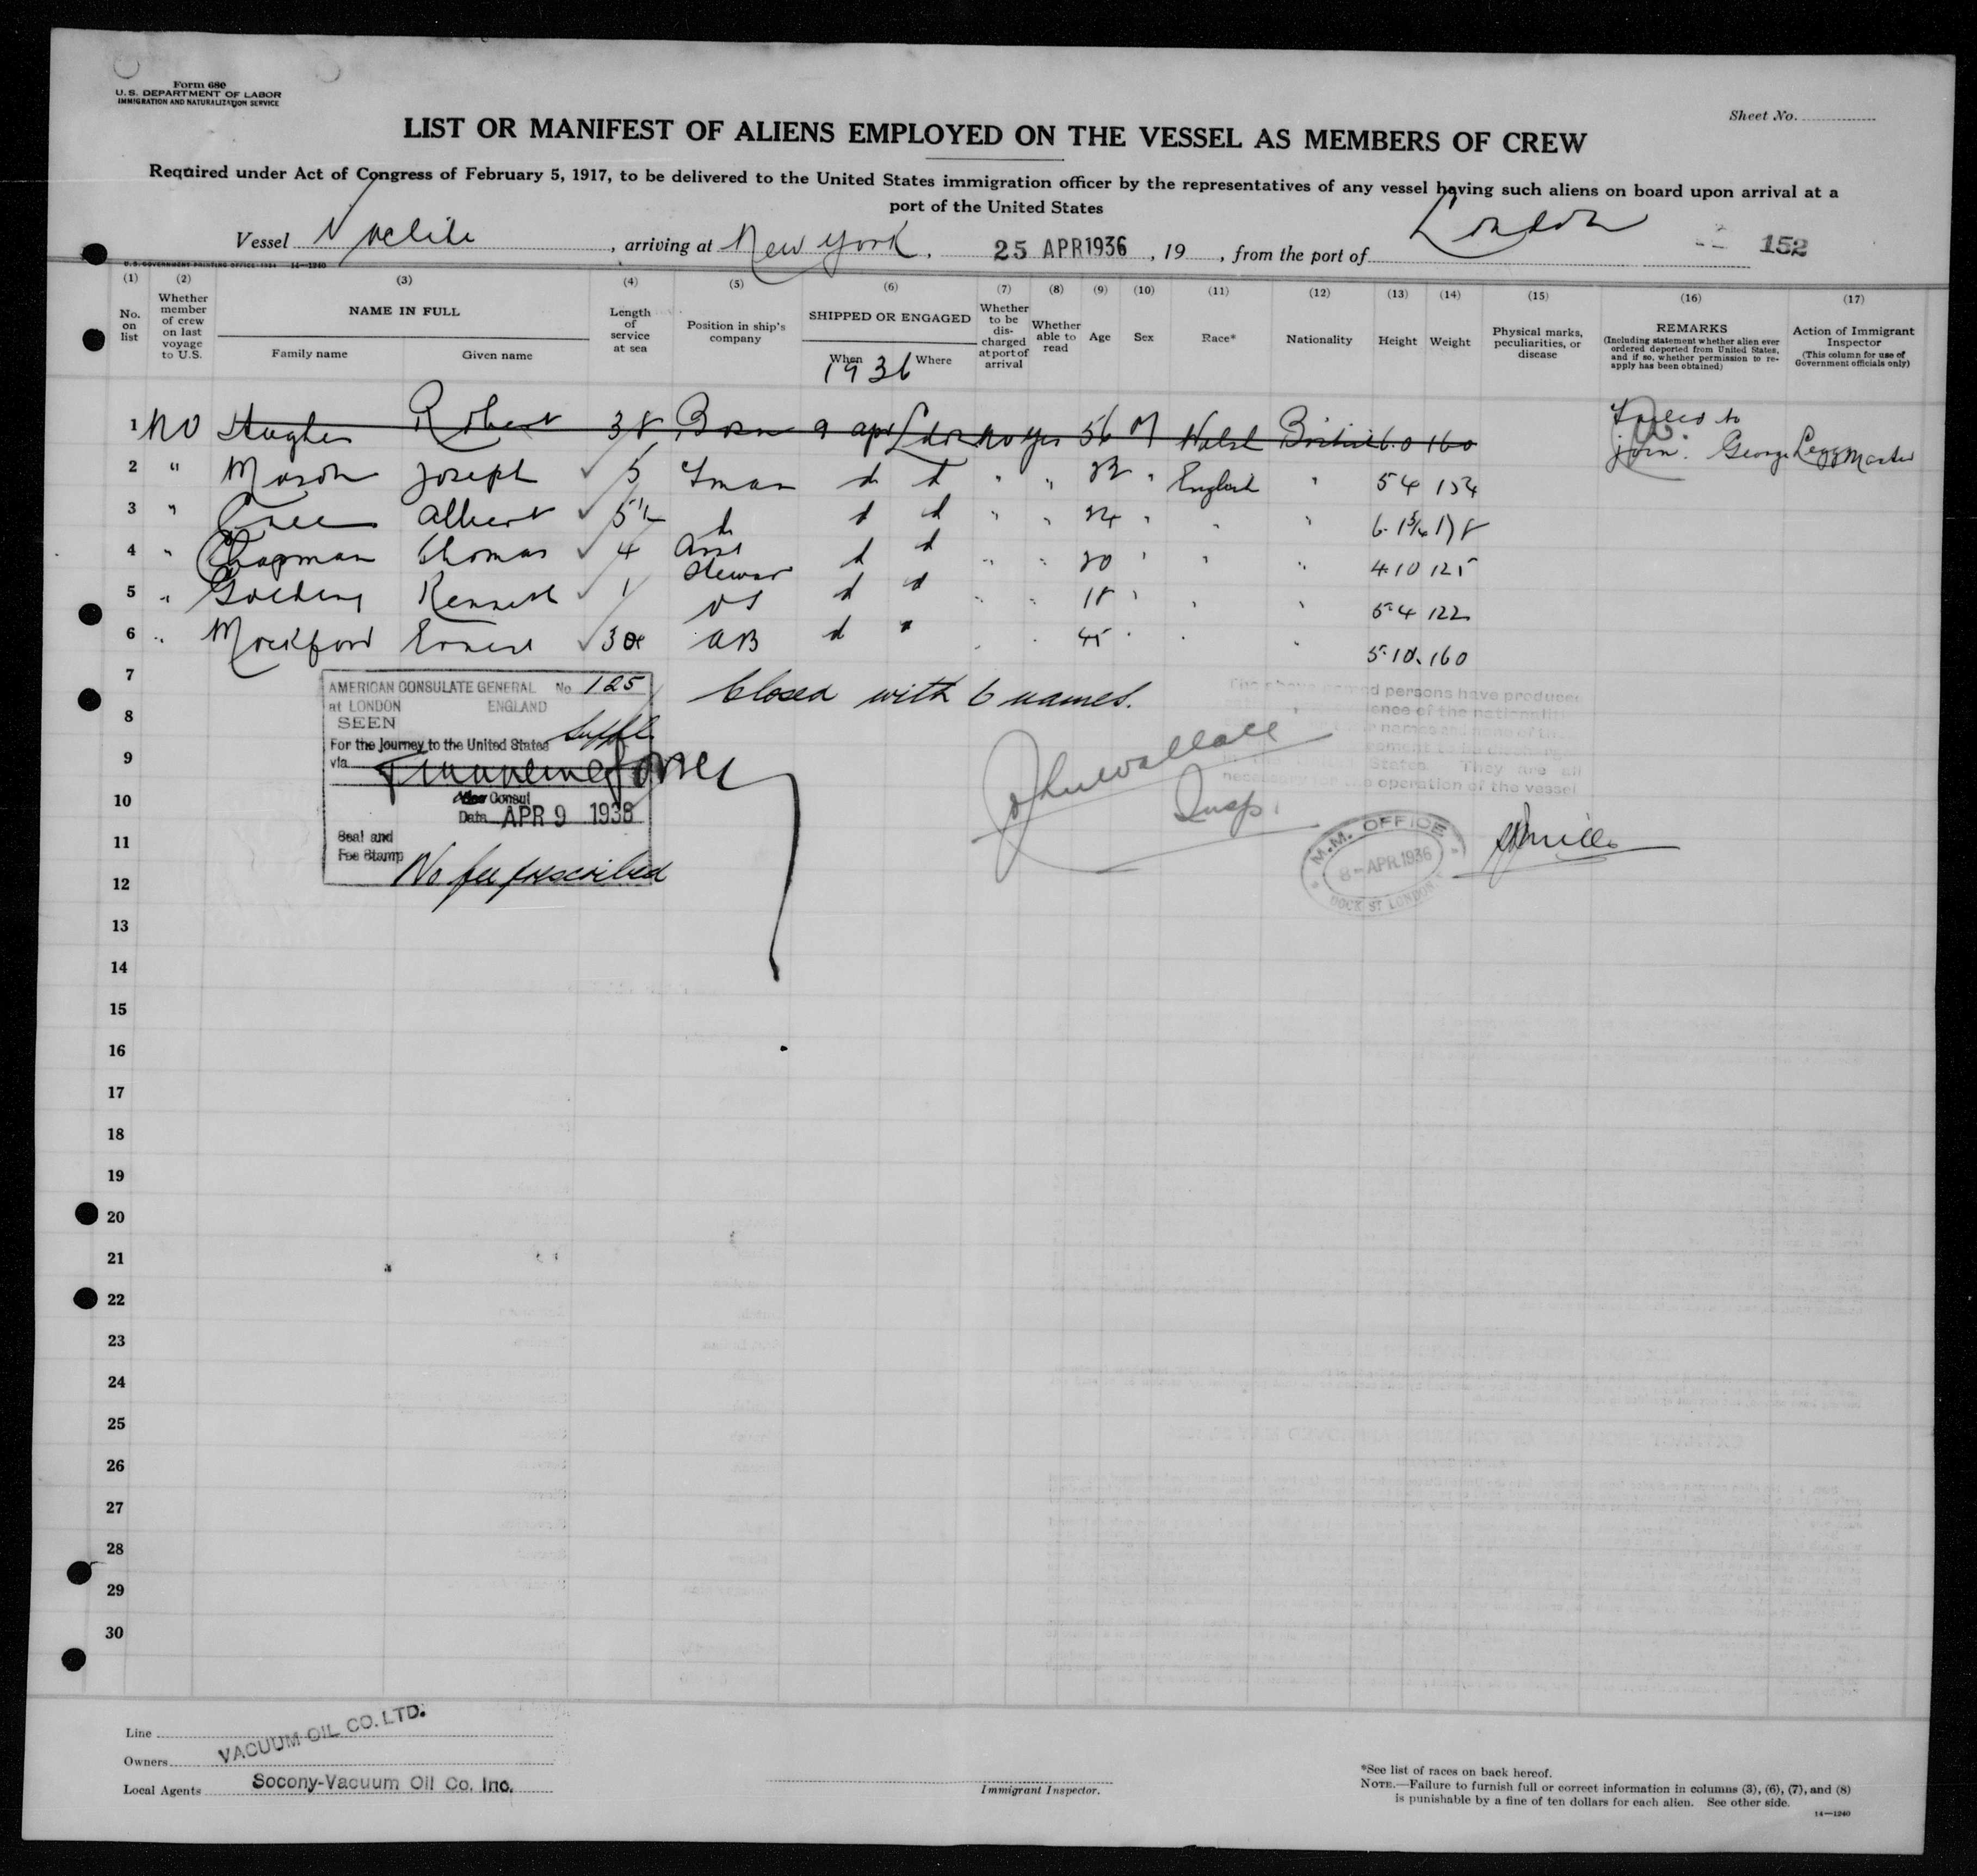 Form 680
U. S. DEPARTMENT OF LABOR
IMMIGRATION AND NATURALIZATION SERVICE
Sheet No.
LIST OR MANIFEST OF ALIENS EMPLOYED ON THE VESSEL AS MEMBERS OF CREW
Required under Act of Congress of February 5, 1917, to be delivered to the United States immigration officer by the representatives of any vessel having such aliens on board upon arrival at a
port of the United States
Vessel Vaclite, arriving at New York, 25 APR 1936, 19, from the port of London 152
U. S. GOVERNMENT PRINTING OFFICE: 1934 14—1240
(1) (2) (3) (4) (5) (6) (7) (8) (9) (10) (11) (12) (13) (14) (15) (16) (17)
No. on list
Whether member of crew on last voyage to U.S.
NAME IN FULL
Family name Given name
Length of service at sea
Position in ship's company
SHIPPED OR ENGAGED
When Where
1936
Whether to be discharged at port of arrival
Whether able to read
Age
Sex
Race*
Nationality
Height
Weight
Physical marks, peculiarities, or disease
REMARKS
(Including statement whether alien ever ordered deported from United States, and if so, whether permission to reapply has been obtained)
Action of Immigrant Inspector
(This column for use of Government officials only)
1 NO Hughes Robert 38 Bosn 9 apl London no yes 56 M Welsh British 6.0 160 Failed to join. George Legg Master
2 " Mason Joseph 5 Fman d d " " " English " 5 4 154
3 " Albert 5½ d d d " " 24 " " " 6.
4 " Chapman Thomas 4 Asst Steward d d " " 20 " " " 4.10 125
5 " Golding Kenneth 1 OS d d " " 18 " " " 5.4 122
6 " Mockford Ernest AB d " " 45 " " " 5.10. 160
7
AMERICAN CONSULATE GENERAL No 125
at LONDON ENGLAND
SEEN
Closed with 6 names.
8
For the Journey to the United States
Suppl.
via
9
John Wallace
Insp.
10
Vice Consul
Date APR 9 1936
11
Seal and
Fee Stamp
No fee prescribed
12
persons have produced
of the nationalit
States. They are all
operation of the vessel
M.M. OFFICE
8 - APR 1936
DOCK ST LONDON
13
14
15
16
17
18
19
20
21
22
23
24
25
26
27
28
29
30
Line
VACUUM OIL CO. LTD.
Owners
Local Agents Socony-Vacuum Oil Co. Inc.
Immigrant Inspector.
*See list of races on back hereof.
NOTE.—Failure to furnish full or correct information in columns (3), (6), (7), and (8)
is punishable by a fine of ten dollars for each alien. See other side.
14—1240